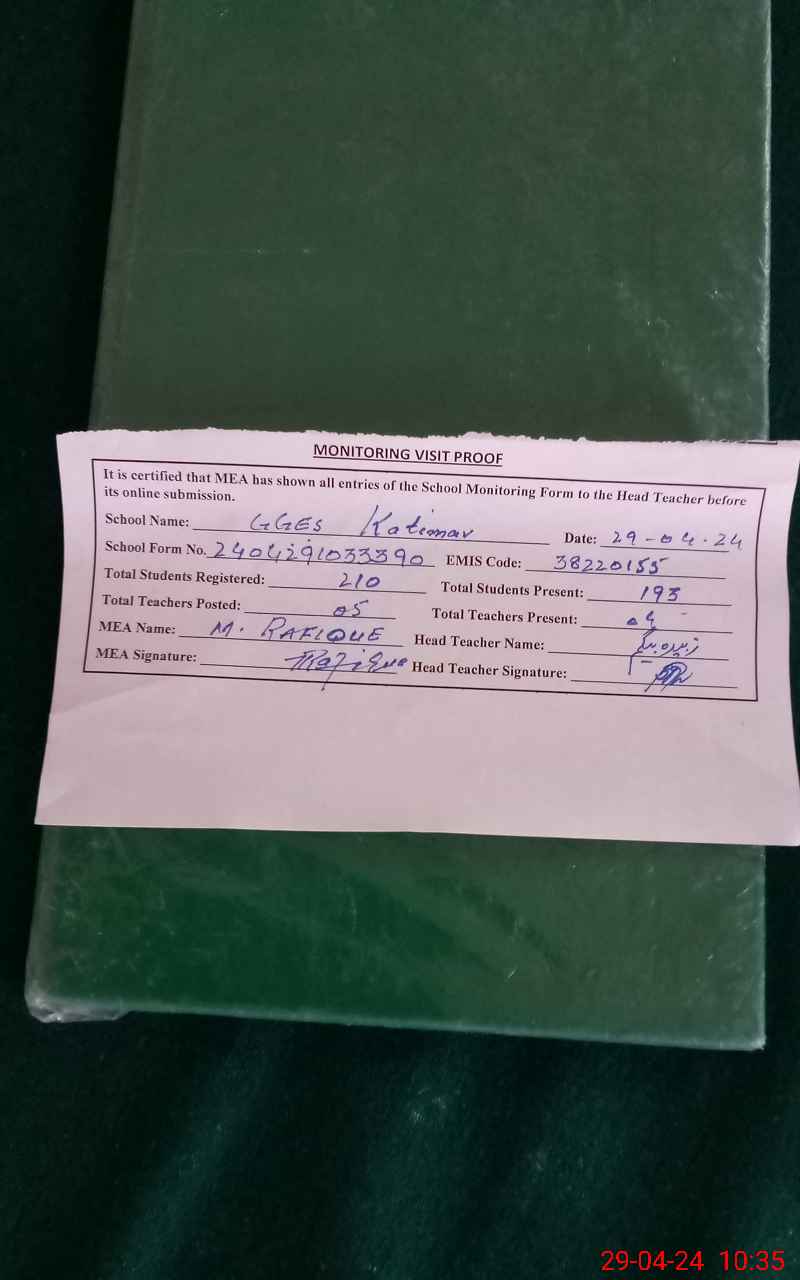 MONITORING VISIT PROOF
It is certified that MEA has shown all entries of the School Monitoring Form to the Head Teacher before
its online submission.
School Name: GGES Katimar Date: 29-04-24
School Form No. 2404291033390 EMIS Code: 38220155
Total Students Registered: 210 Total Students Present: 193
Total Teachers Posted: 05 Total Teachers Present: 04
MEA Name: M. RAFIQUE Head Teacher Name:
MEA Signature: Rafique Head Teacher Signature:
29-04-24 10:35